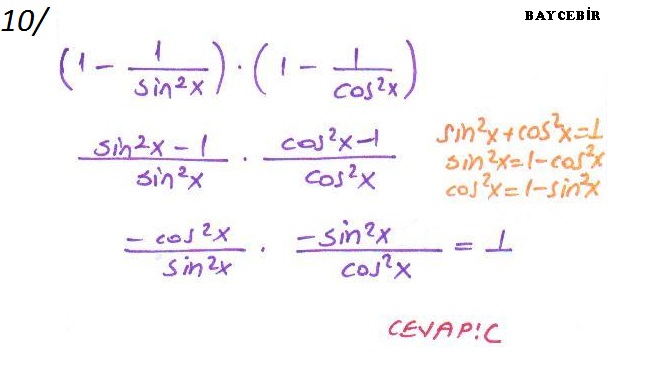 10/
BAYCEBİR
(1 - 1/sin²x) · (1 - 1/cos²x)
sin²x - 1/sin²x · cos²x - 1/cos²x
sin²x + cos²x = 1
sin²x = 1 - cos²x
cos²x = 1 - sin²x
- cos²x/sin²x · - sin²x/cos²x = 1
CEVAP: C